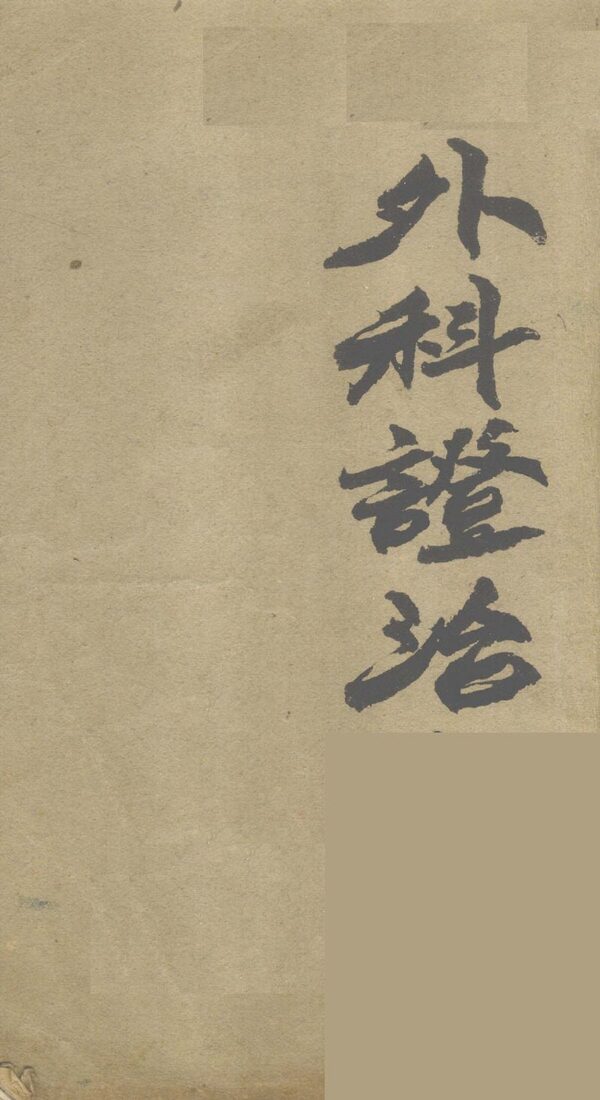 外科證治